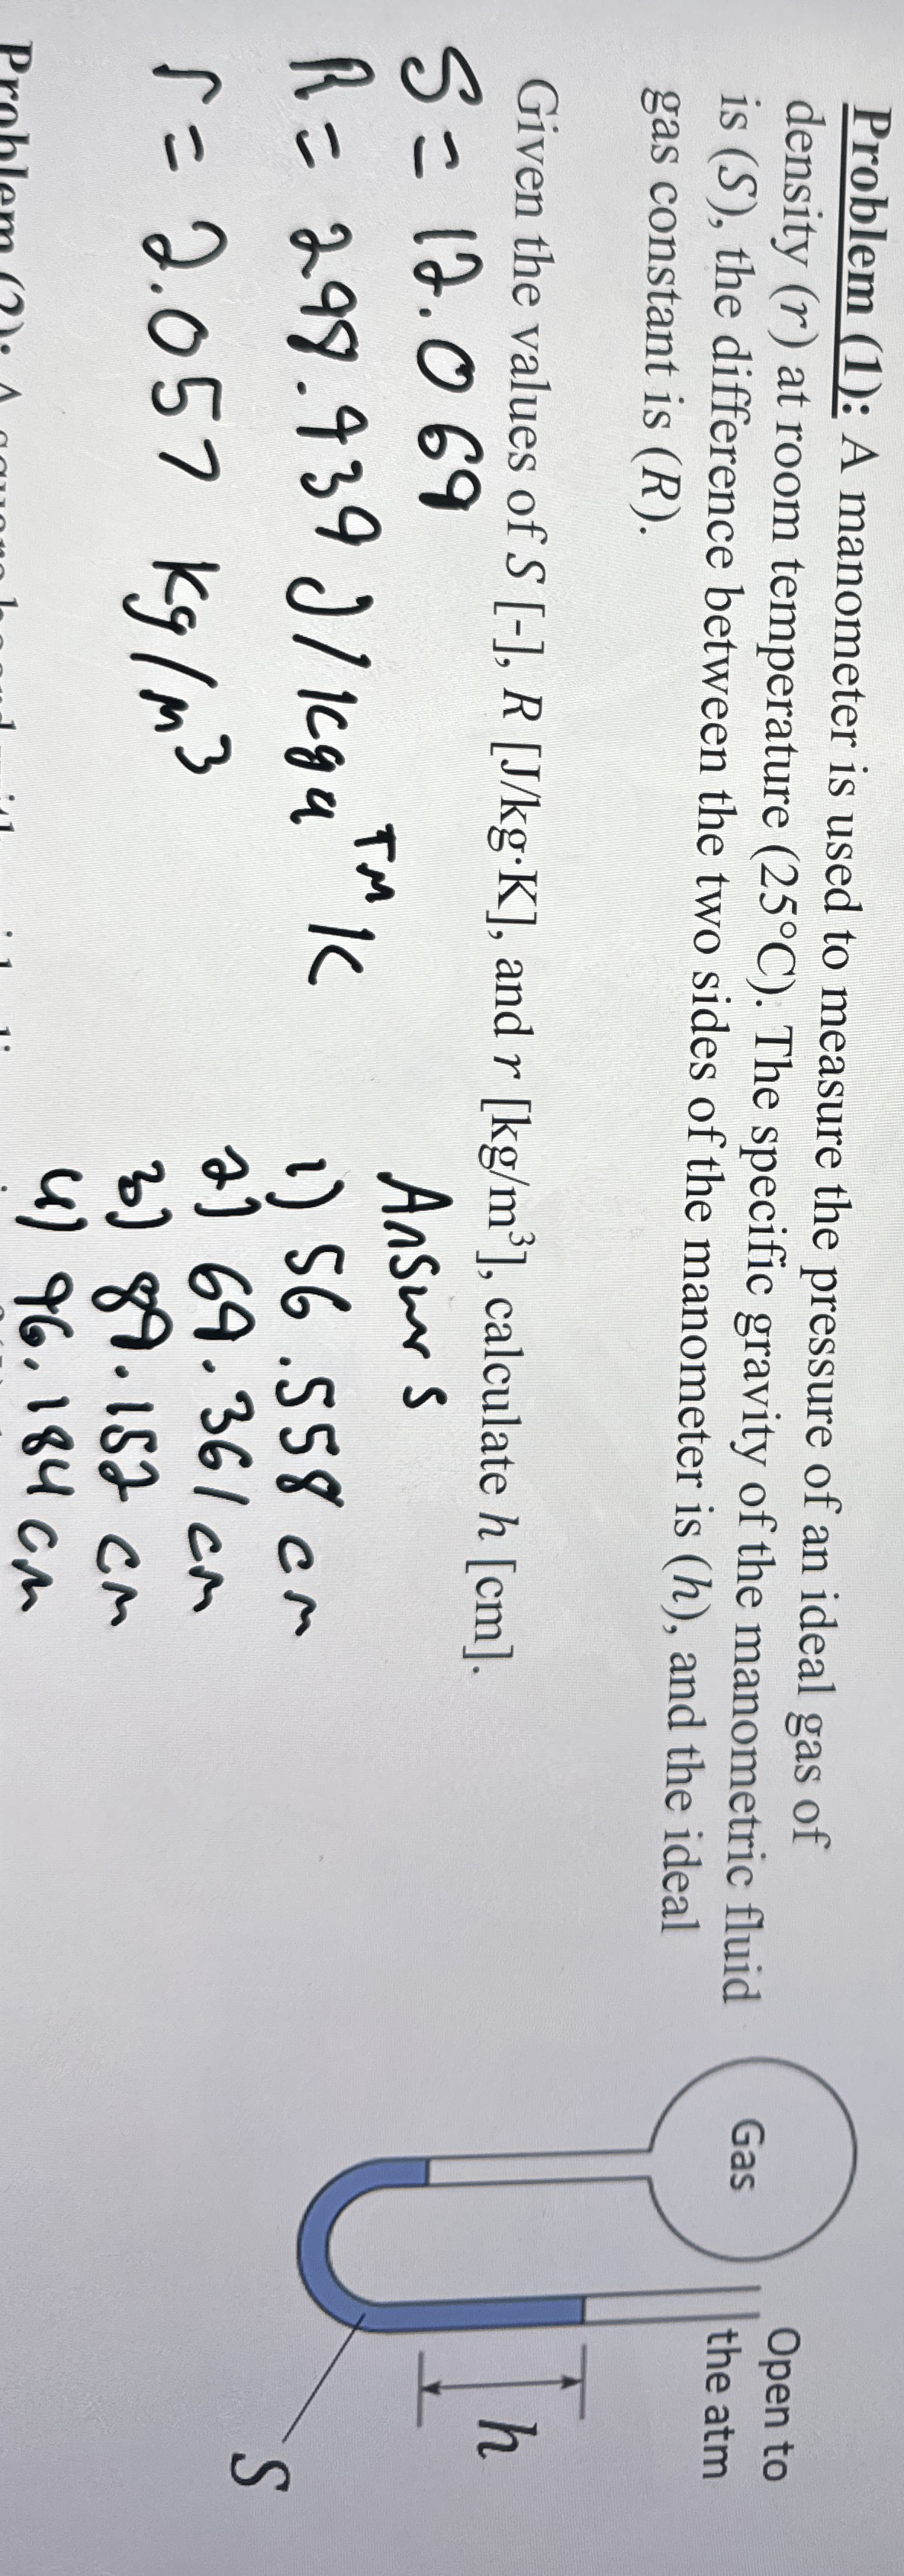 Problem (1): A manometer is used to measure the pressure of an ideal gas of
density (r) at room temperature (25°C). The specific gravity of the manometric fluid
is (S), the difference between the two sides of the manometer is (h), and the ideal
gas constant is (R).
Gas
Open to
the atm
h
S
Given the values of S [-], R [J/kg·K], and r [kg/m³], calculate h [cm].
S = 12.069
R = 298.939 J/kgaᵀᴹK
r = 2.057 kg/m³
Answrs
1) 56.558 cm
2) 69.361 cm
3) 89.152 cm
4) 96.184 cm